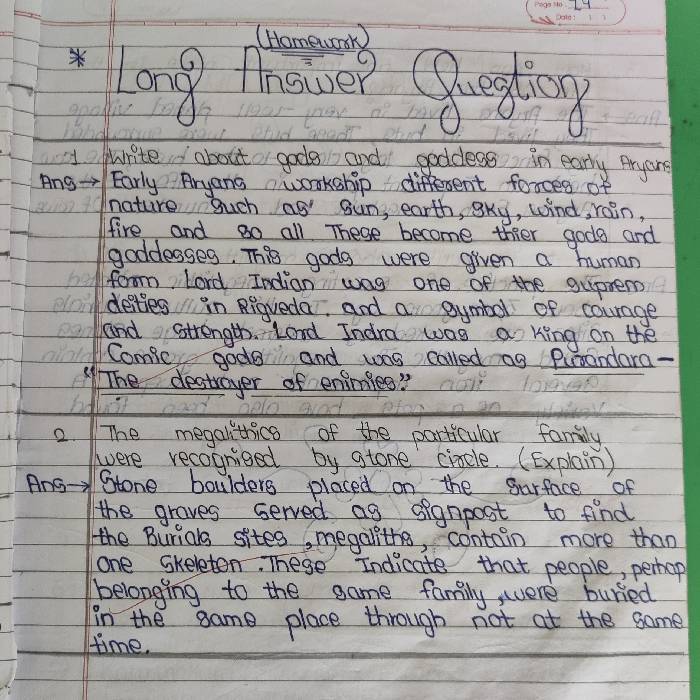 Page No. 24
Date:
(Homework)
* Long Answer Question
1 Write about gods and goddess in early Aryans
Ans → Early Aryans workship different forces of
nature such as sun, earth, sky, wind, rain,
fire and so all. These become thier gods and
goddesses. This gods were given a human
form Lord Indian was one of the suprem
deities in Rigveda. and a symbol of courage
and strength. Lord Indra was a king on the
Comic gods and was called as Purandara –
"The destroyer of enimies".
2. The megalithics of the particular family
were recognised by stone circle. (Explain)
Ans → Stone boulders placed on the surface of
the graves served as signpost to find
the Burials sites, megaliths, contain more than
one skeleton. These Indicate that people, perhap
belonging to the same family, were buried
in the same place through not at the same
time.